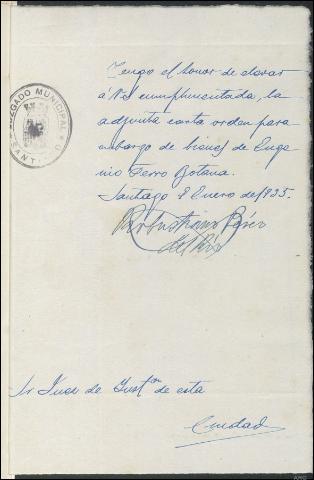 JUZGADO MUNICIPAL
SANTIAGO
Tengo el honor de elevar
á V.S. cumplimentada, la
adjunta carta orden para
embargo de bienes de Euge
nio Ferro Botana.
Santiago 8 Enero de 1935.
Pérez
del Río
Sr Juez de Instón de esta
Ciudad